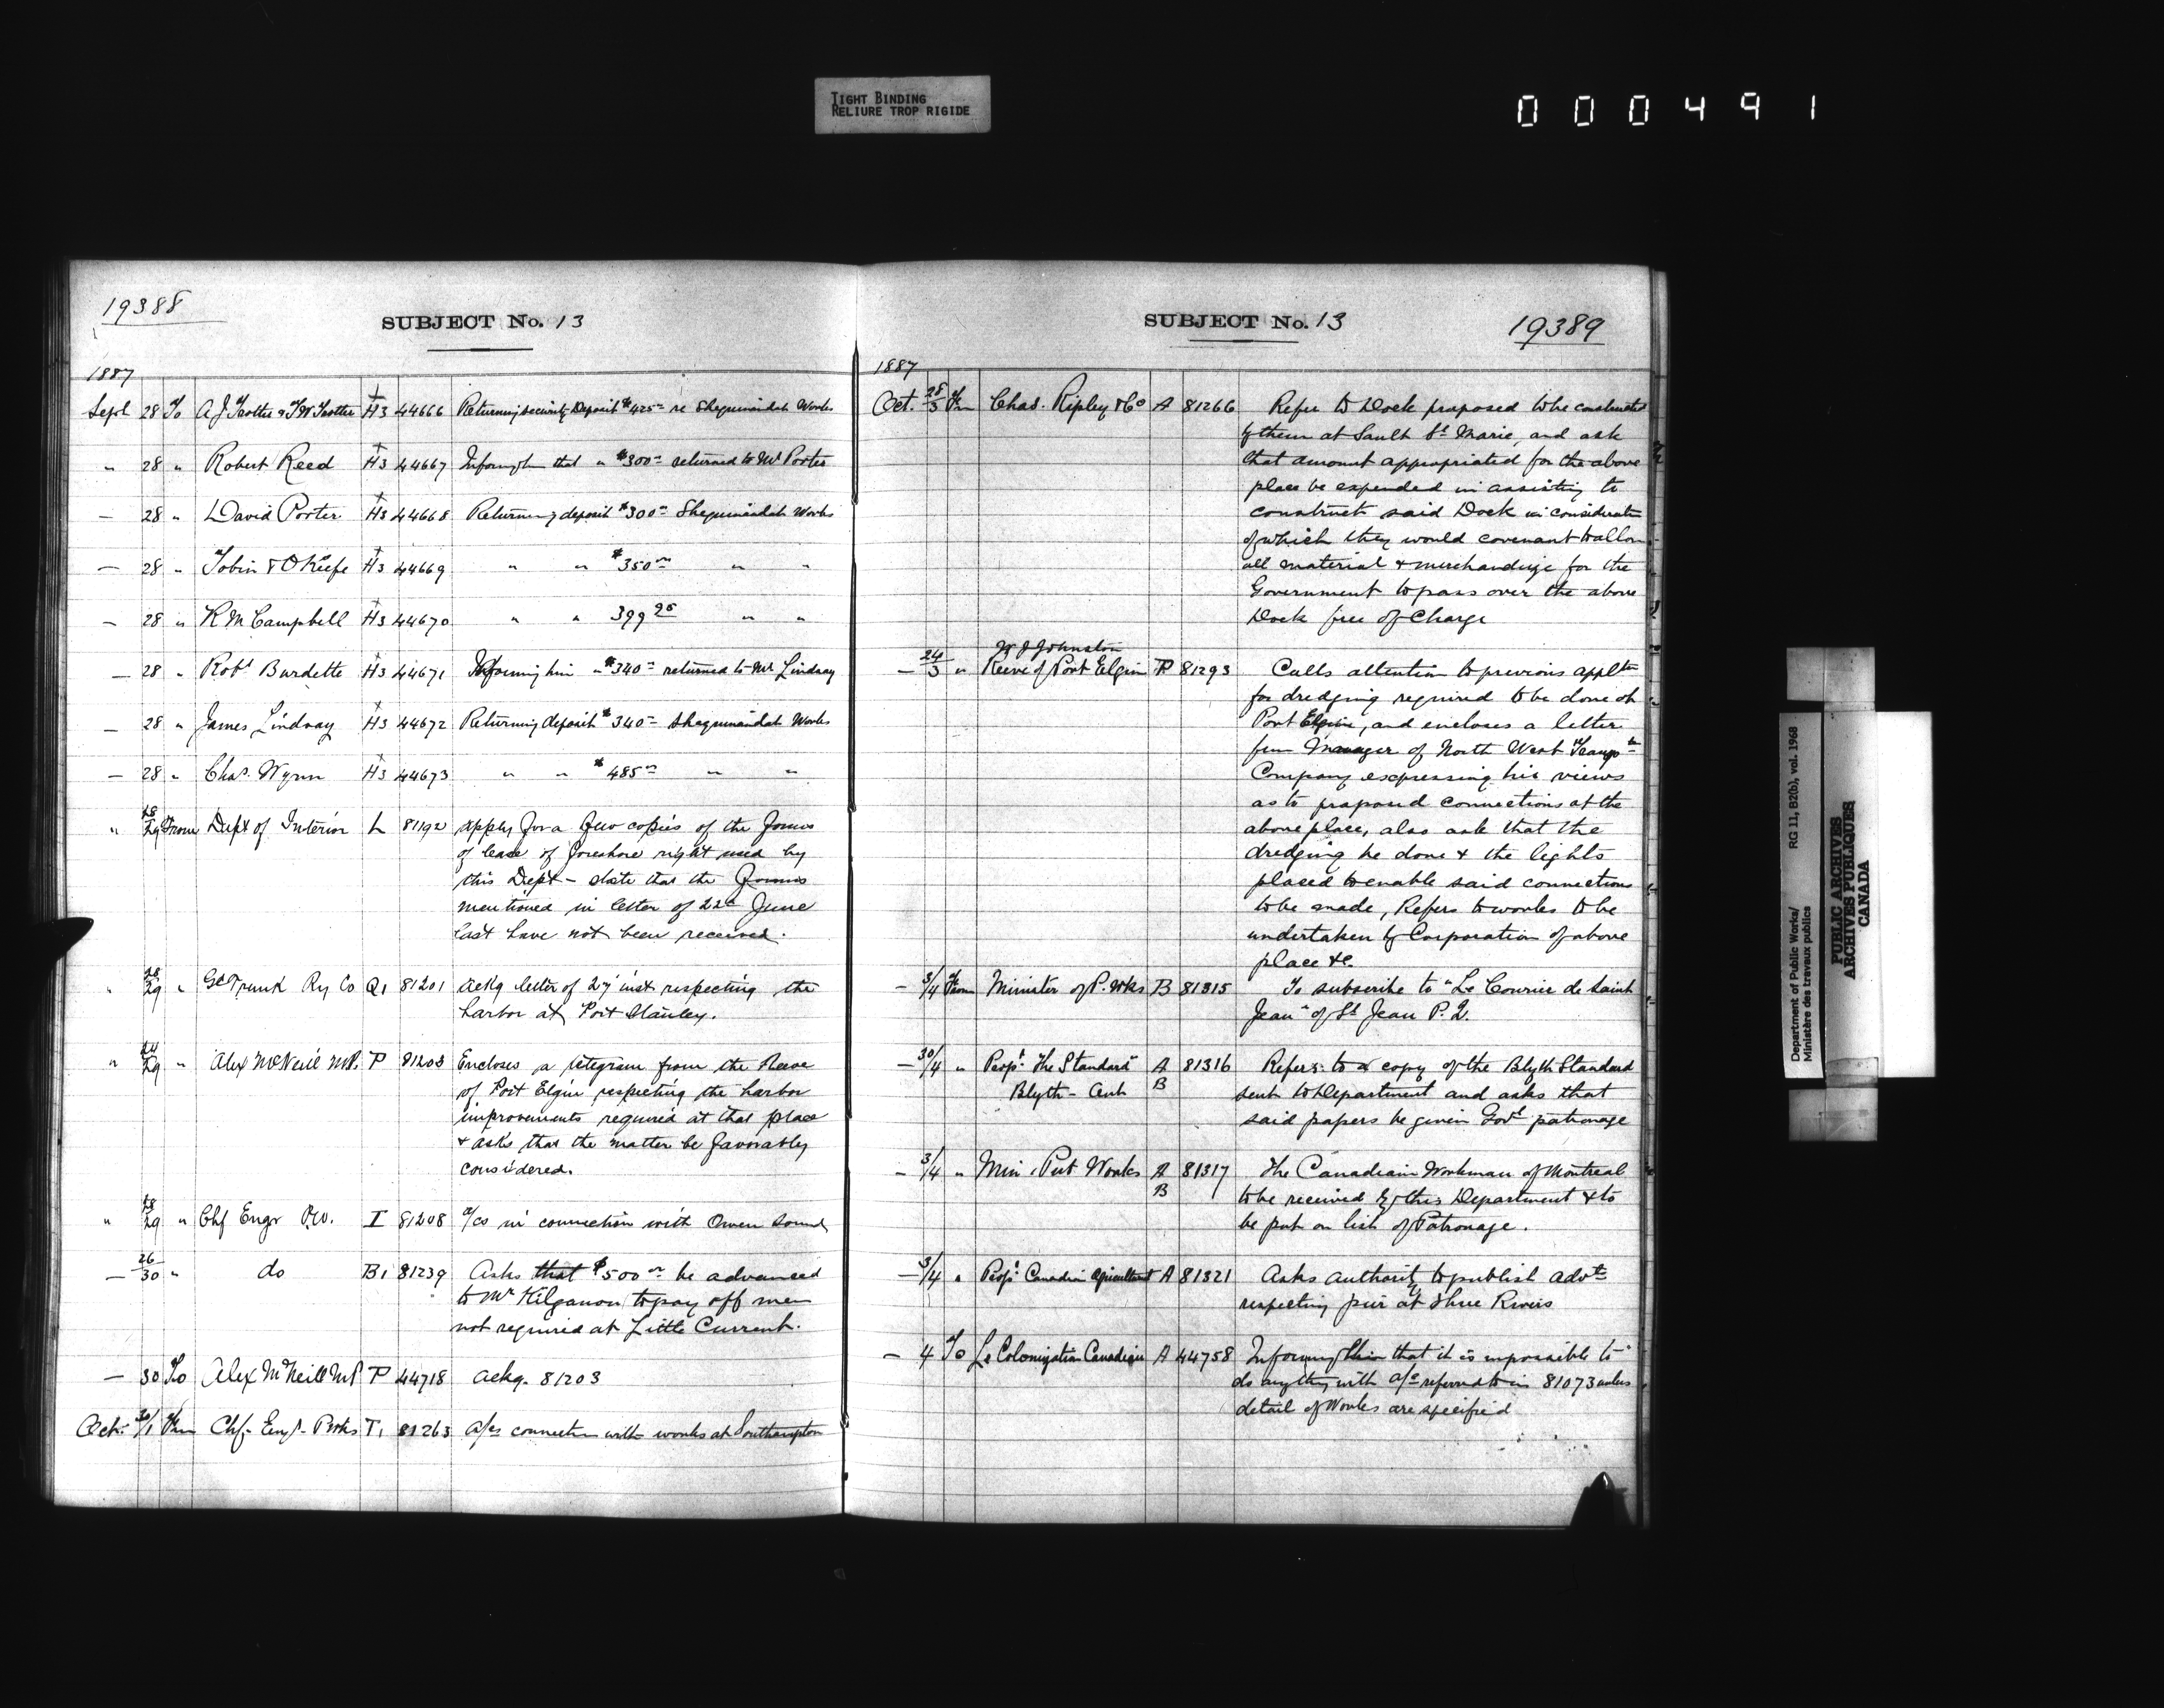 TIGHT BINDING
RELIURE TROP RIGIDE
000491
19388
SUBJECT No. 13
1887
Sept 28 To A J Trotter & T W Trotter H3 44666 Returning security Deposit $425 00 re Sheguiandah Works
" 28 " Robert Reed H3 44667 Informg him that " $300 00 returned to Mr Porter
— 28 " David Porter H3 44668 Returning deposit $300 00 Sheguiandah Works
— 28 " Tobin & O'Keefe H3 44669 " " $350 00 " "
— 28 " K M Campbell H3 44670 " " 399 25 " "
— 28 " Robt Burdette H3 44671 Informing him " $340 00 returned to Mr Lindsay
— 28 " James Lindsay H3 44672 Returning deposit $340 00 Sheguiandah Works
— 28 " Chas. Wynn H3 44673 " " $485 00 " "
" 28/29 From Dept of Interior L 81192 apply for a few copies of the forms
of lease of foreshore right used by
this Dept - state that the forms
mentioned in letter of 22d June
last have not been received.
" 28/29 " Gd Trunk Ry Co Q1 81201 ackg letter of 27 inst respecting the
harbor at Port Stanley.
" 24/29 " Alex McNeill M.P. P 81203 Encloses a telegram from the Reeve
of Port Elgin respecting the harbor
improvements required at that place
& asks that the matter be favorably
considered.
" 28/29 " Chf Engr P.W. I 81208 a/cs in connection with Owen Sound
— 26/30 " do B1 81239 Asks that $500 00 be advanced
to Mr Kilganon to pay off men
not required at Little Current.
— 30 To Alex McNeill MP P 44718 ackg. 81203
Oct. 30/1 Frm Chf. Eng. P. Wks T1 81263 a/cs connection with works at Southampton
SUBJECT No. 13
19389
1887
Oct. 28/3 Frm Chas. Ripley & Co A 81266 Refer to Dock proposed to be constructed
by them at Sault St Marie, and ask
that amount appropriated for the above
place be expended in assisting to
construct said Dock in consideration
of which they would covenant to allow
all material & merchandize for the
Government to pass over the above
Dock free of Charge
— 24/3 " Johnston
Reeve of Port Elgin P 81293 Calls attention to previous applt
for dredging required to be done at
Port Elgin, and encloses a letter
from Manager of North West Transp tn
Company expressing his views
as to proposed connections at the
above place, also ask that the
dredging be done & the lights
placed to enable said connections
to be made, Refers to works to be
undertaken by Corporation of above
place &c.
— 3/4 From Minister of P. Wks B 81315 To subscribe to "Le Courrier de Saint
Jean" of St Jean P.Q.
— 30/4 " Propr The Standard A 81316 Refers to a copy of the Blyth Standard
Blyth - Ont B sent to Department and asks that
said papers be given Govt patronage
— 3/4 " Min. Pub Works A 81317 The Canadian Workman of Montreal
B to be received by this Department & to
be put on list of Patronage.
— 3/4 " Propr Canadian Agriculturist A 81321 Asks authority to publish advts
respecting pier at Three Rivers
— 4 To La Colonization Canadien A 44758 Informing him that it is impossible to
do anything with a/c referred to in 81073 unless
detail of Works are specified
Department of Public Works/
Ministère des travaux publics
RG 11, B2(b), vol. 1968
PUBLIC ARCHIVES
ARCHIVES PUBLIQUES
CANADA